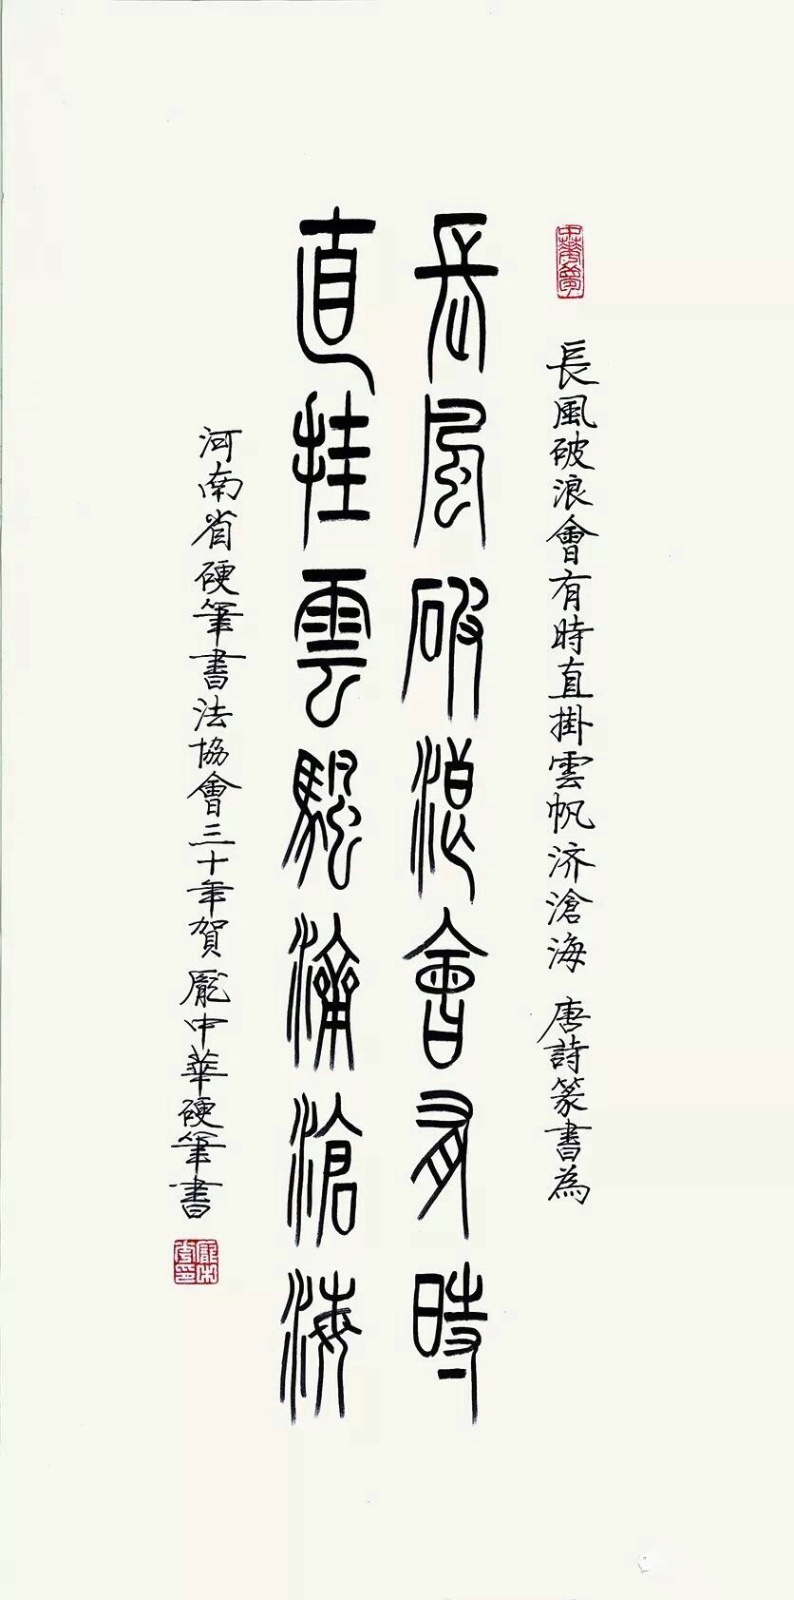 中華夢
長風破浪會有時直掛雲帆济滄海 唐詩篆書為
長風破浪會有時
直挂雲颿濟滄海
河南省硬筆書法協會三十年賀 龐中華硬筆書